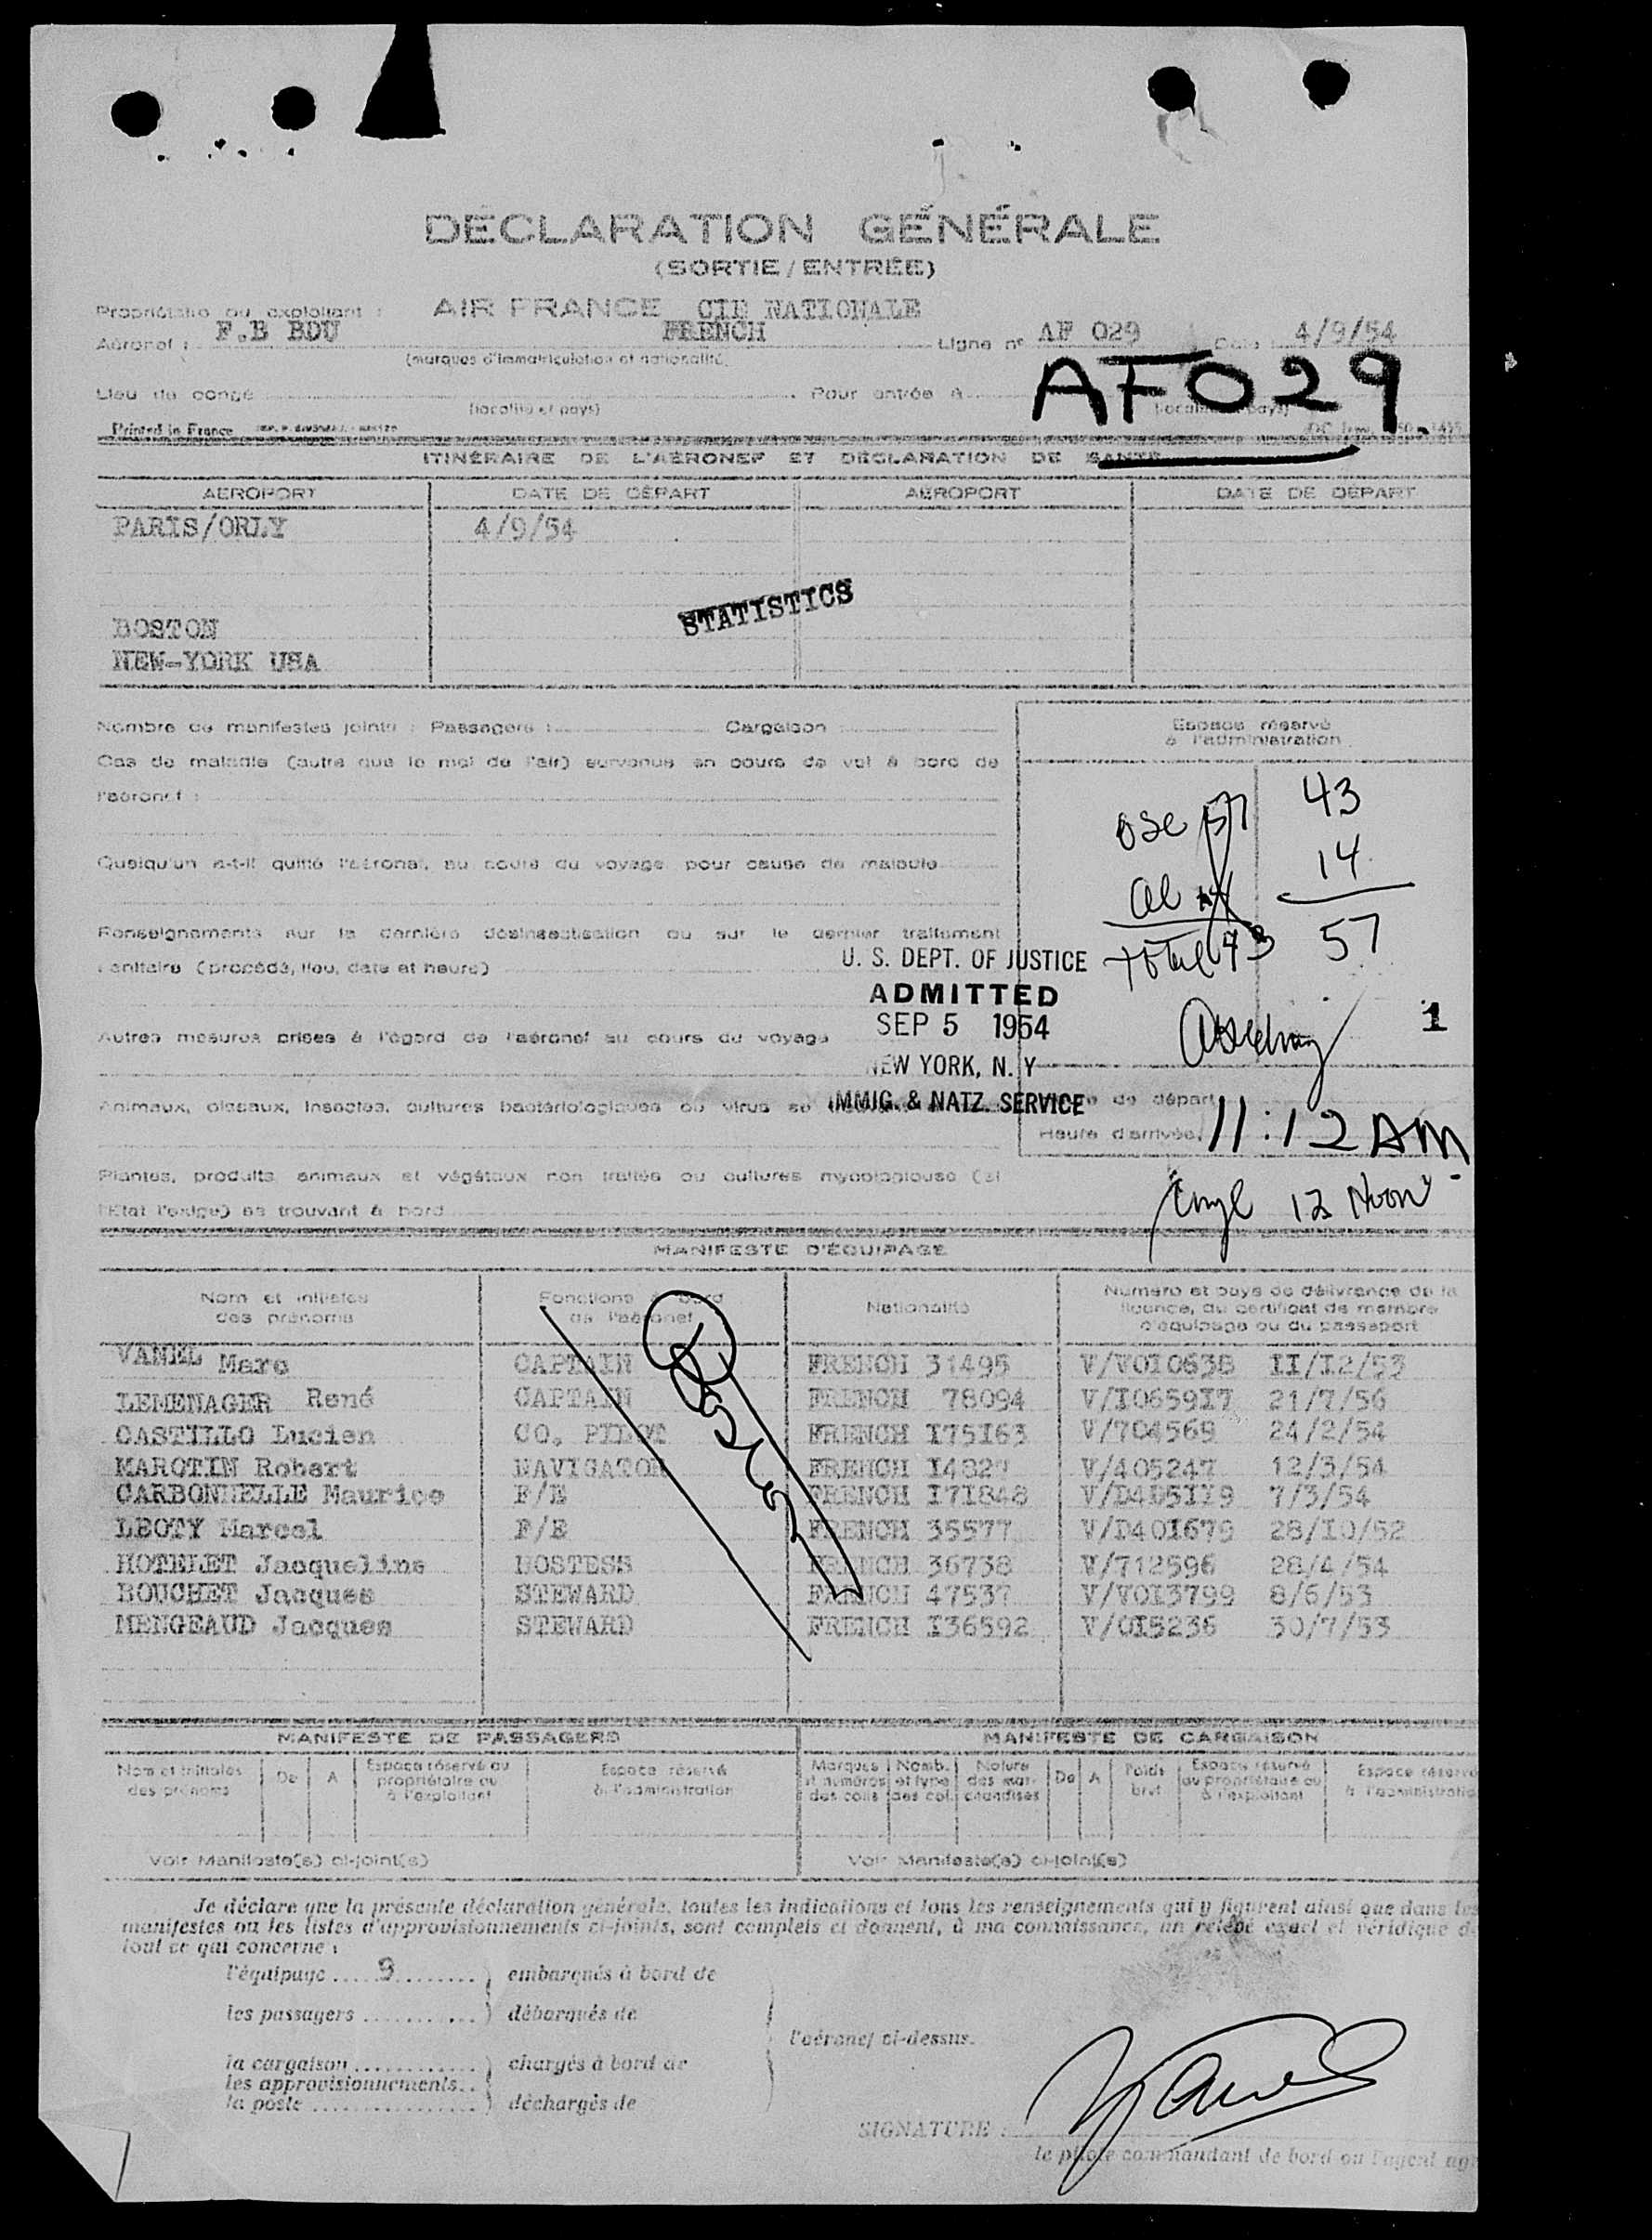 DÉCLARATION GÉNÉRALE
(SORTIE/ENTRÉE)
Propriétaire ou exploitant : AIR FRANCE CIE NATIONALE
Aéronef : F.B BDU FRENCH Ligne n° AF 029 Date 4/9/54
(marques d'immatriculation et nationalité)
AF029
Lieu de congé Pour entrée à
(localité et pays)
Printed in France
ITINÉRAIRE DE L'AÉRONEF ET DÉCLARATION DE SANTÉ
AEROPORT DATE DE DÉPART AEROPORT DATE DE DÉPART
PARIS/ORLY 4/9/54
STATISTICS
BOSTON
NEW-YORK USA
Nombre de manifestes joints : Passagers : Cargaison :
Espace réservé
à l'administration
Cas de maladie (autre que le mal de l'air) survenus en cours de vol à bord de
l'aéronef :
43
14
57
Quelqu'un a-t-il quitté l'aéronef, au cours du voyage pour cause de maladie
Total 43
Renseignements sur la dernière désinsectisation ou sur le dernier traitement
sanitaire (procédé, lieu, date et heure)
U. S. DEPT. OF JUSTICE
ADMITTED
SEP 5 1954
NEW YORK, N. Y
IMMIG. & NATZ. SERVICE
1
Autres mesures prises à l'égard de l'aéronef au cours du voyage
Animaux, oiseaux, insectes, cultures bactériologiques ou virus se
de départ
Heure d'arrivée 11:12 AM
12 Noon
Plantes, produits animaux et végétaux non traités ou cultures mycologiques (si
l'Etat l'exige) se trouvant à bord
MANIFESTE D'ÉQUIPAGE
Nom et initiales
des prénoms
Fonctions à bord
de l'aéronef
Nationalité
Numéro et pays de délivrance de la
licence, du certificat de membre
d'équipage ou du passeport
VANEL Marc CAPTAIN FRENCH 31495 V/VOI0638 II/I2/53
LEMENAGER René CAPTAIN FRENCH 78094 V/I0659I7 21/7/56
CASTILLO Lucien CO. PILOT FRENCH I75I63 V/704569 24/2/54
MAROTIN Robert NAVIGATOR FRENCH I4827 V/405247 12/3/54
CARBONNELLE Maurice F/E FRENCH I71848 V/D405II9 7/3/54
LEOTY Marcel F/E FRENCH 35577 V/D40I679 28/I0/52
HOTELET Jacqueline HOSTESS FRENCH 36738 V/712596 28/4/54
BOUCHET Jacques STEWARD FRENCH 47537 V/VOI3799 8/6/53
MENGEAUD Jacques STEWARD FRENCH I36592 V/OI5236 30/7/53
MANIFESTE DE PASSAGERS MANIFESTE DE CARGAISON
Nom et initiales
des prénoms
De A
Espace réservé au
propriétaire ou
à l'exploitant
Espace réservé
à l'administration
Marques
et numéros
des colis
Nomb.
et type
des col.
Nature
des mar-
chandises
De A
Poids
brut
Espace réservé
au propriétaire ou
à l'exploitant
Espace réservé
à l'administratio
Voir Manifeste(s) ci-joint(s) Voir Manifeste(s) ci-joint(s)
Je déclare que la présente déclaration générale, toutes les indications et tous les renseignements qui y figurent ainsi que dans les
manifestes ou les listes d'approvisionnements ci-joints, sont complets et donnent, à ma connaissance, un relevé exact et véridique de
tout ce qui concerne :
l'équipage .... 9 ........ embarqués à bord de
les passagers ........... débarqués de
l'aéronef ci-dessus.
la cargaison ............ chargés à bord de
les approvisionnements..
la poste ................ déchargés de
SIGNATURE :
le pilote commandant de bord ou l'agent ag